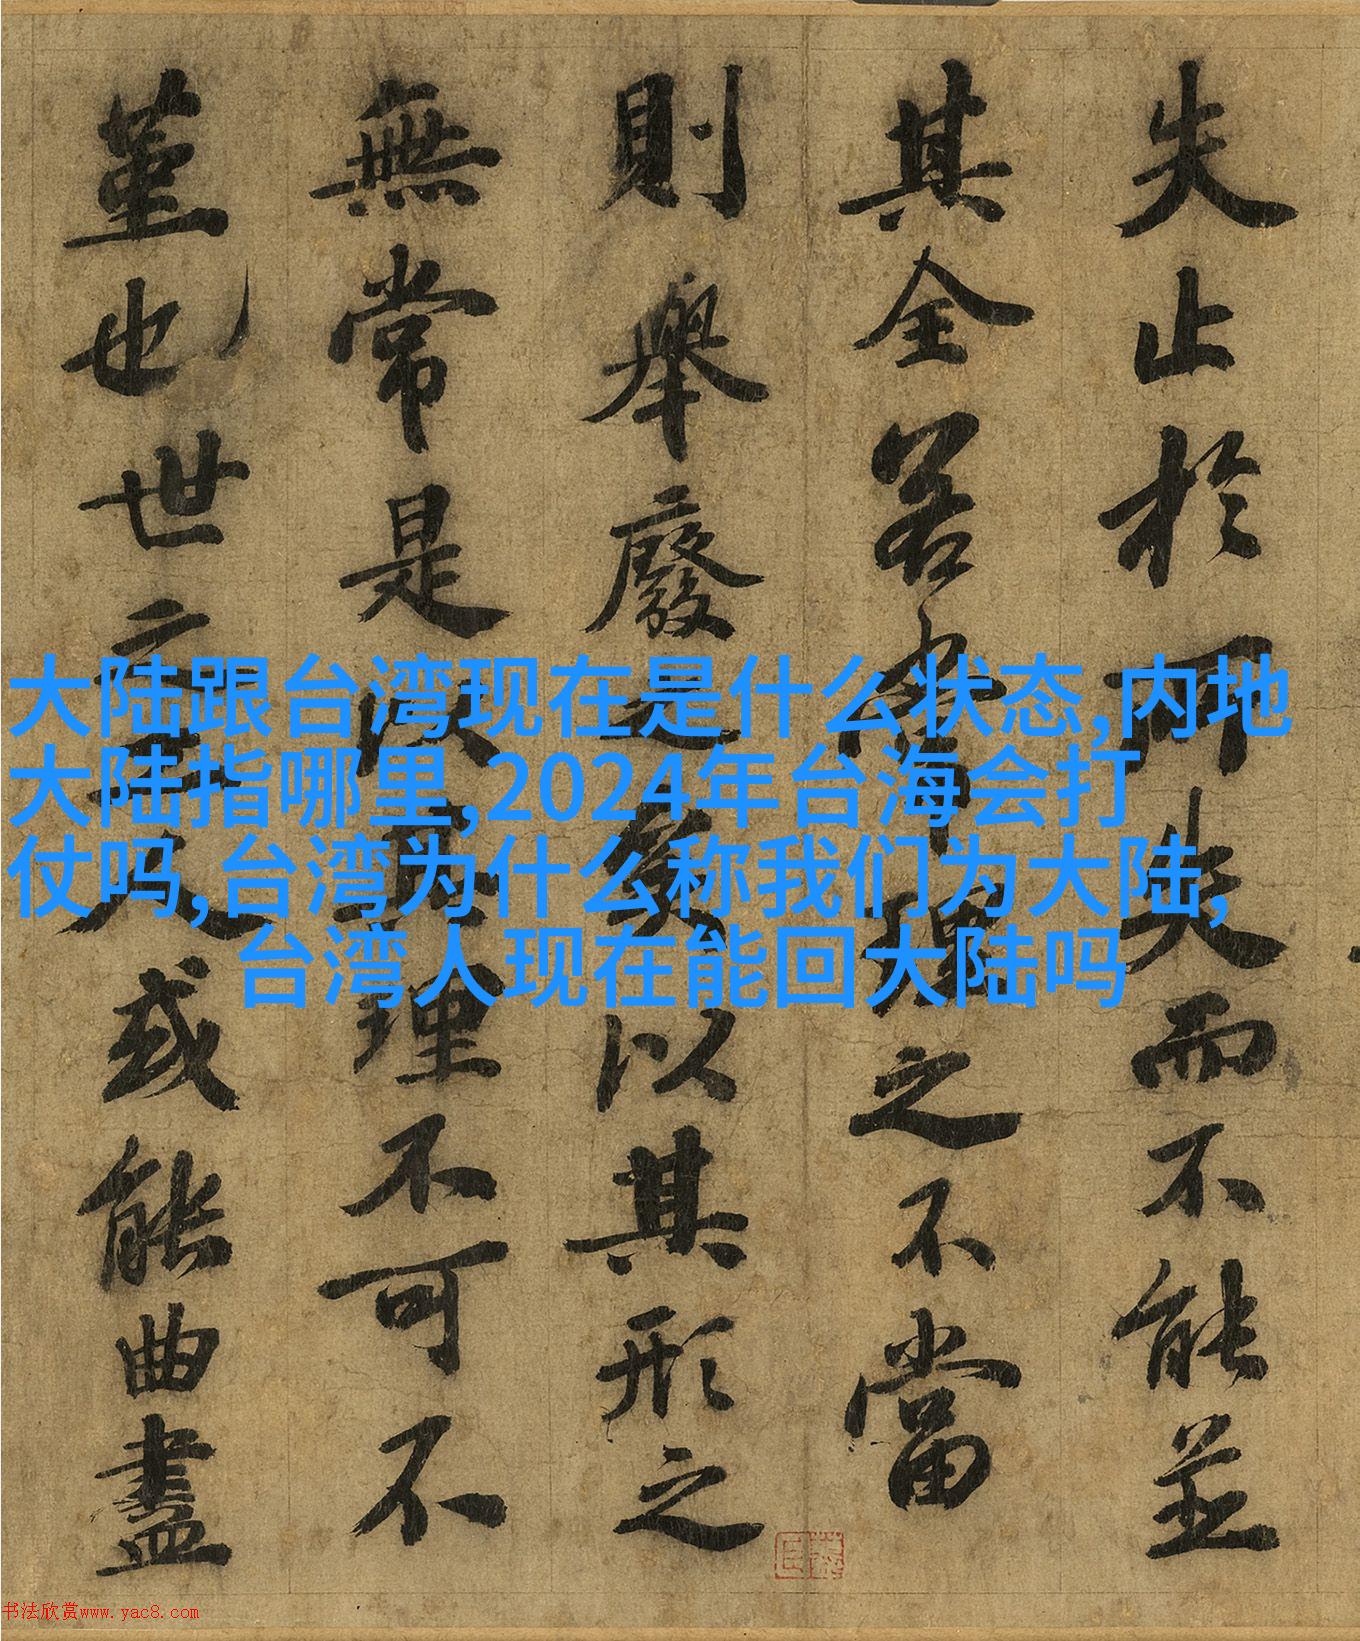 失止於所失而不能並
其全若常理之不當
則舉廢之矣以其形之
無常是以其理不可不
堇也世之工人或能曲盡
大陆跟台湾现在是什么状态,内地
大陆指哪里,2024年台海会打
仗吗,台湾为什么称我们为大陆,
台湾人现在能回大陆吗
书法欣赏www.yac8.com